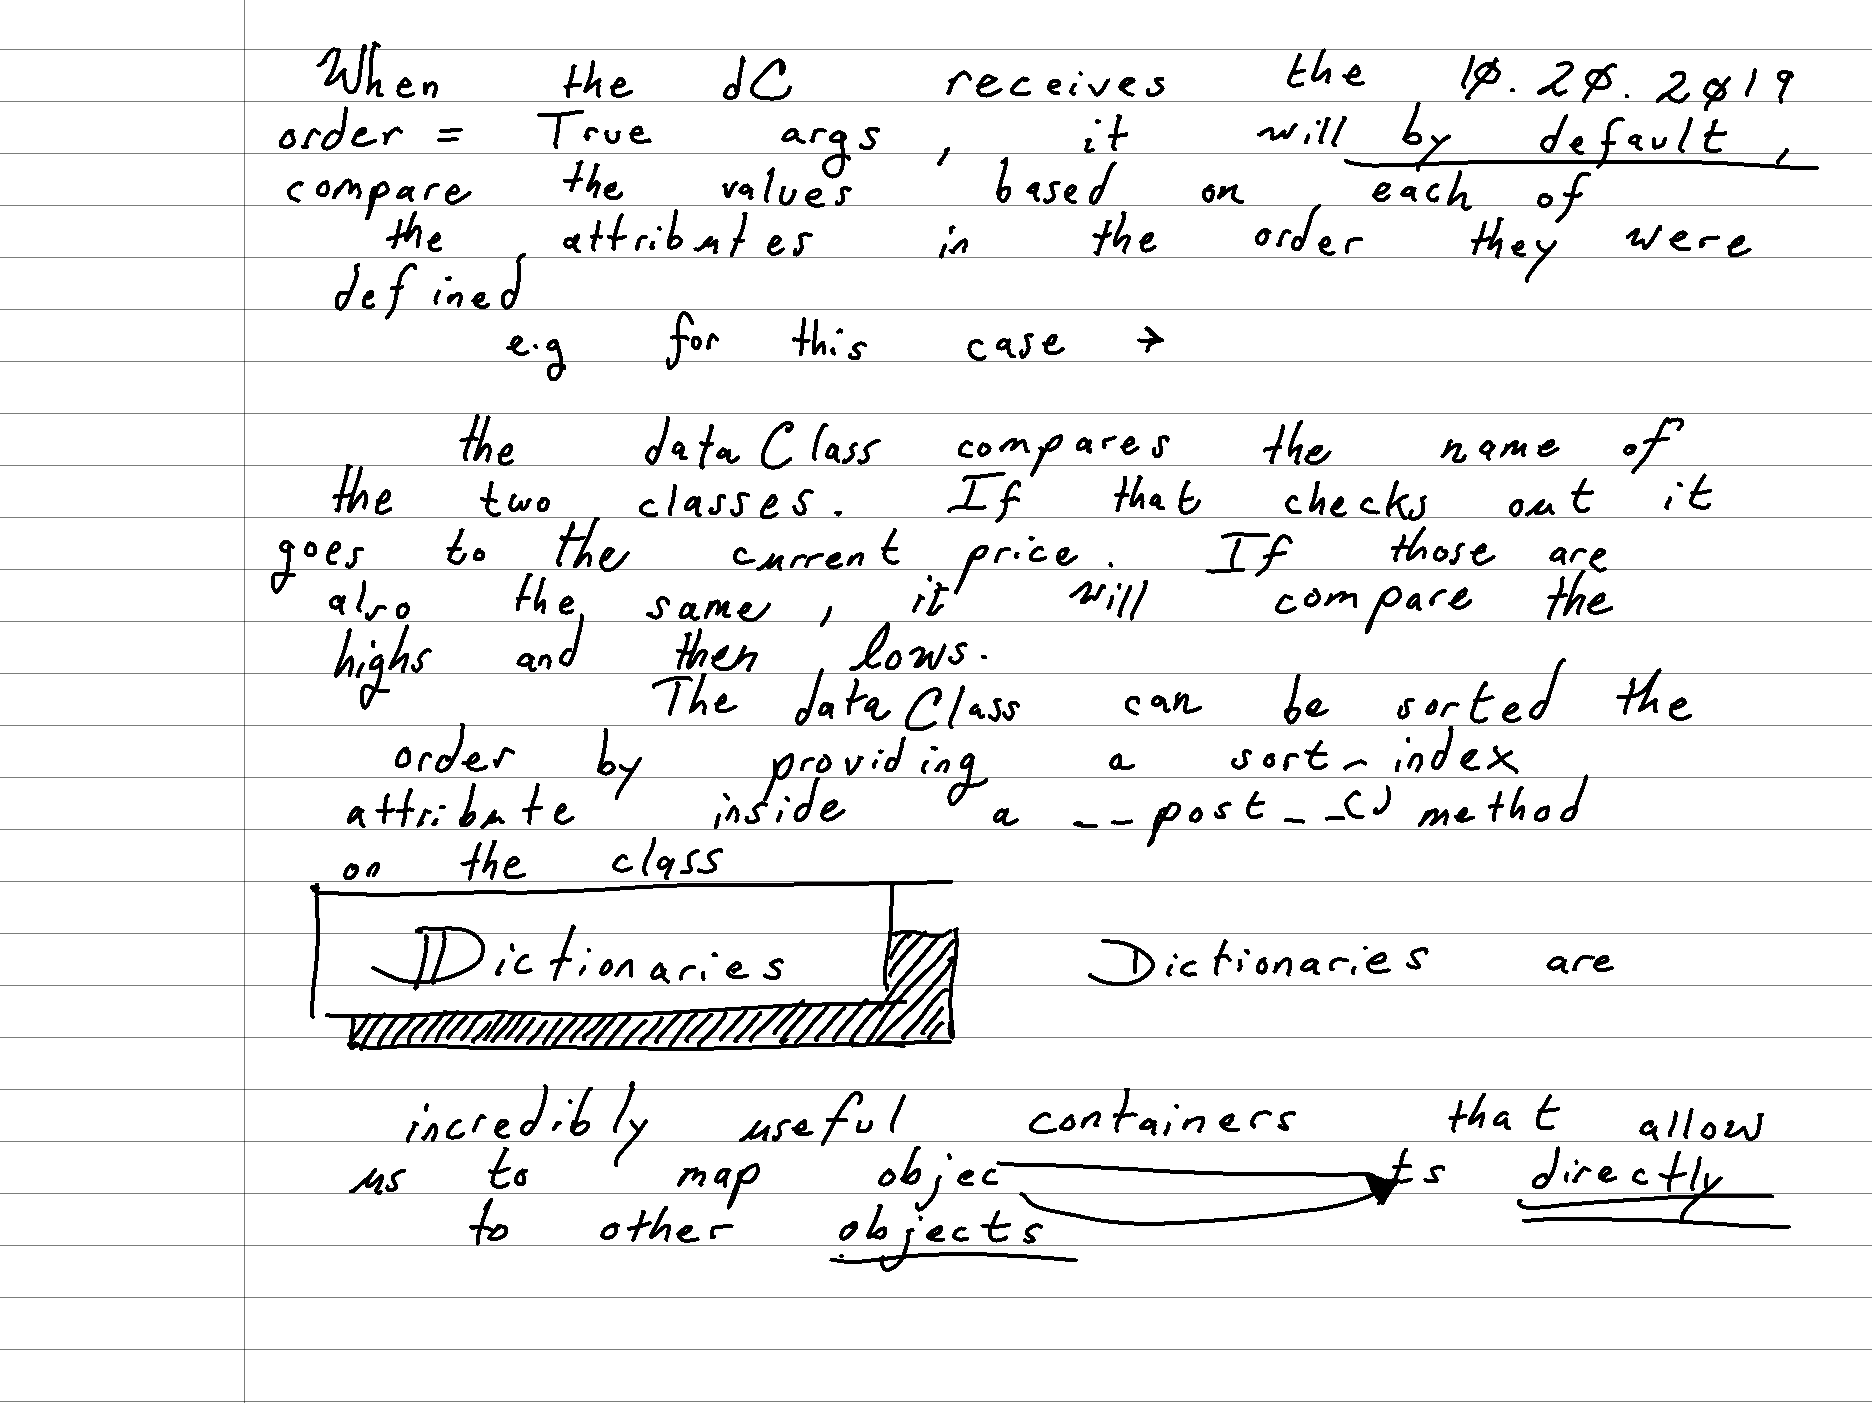 When the dC receives the 10.20.2019
order = True args, it will by default,
compare the values based on each of
the attributes in the order they were
defined
e.g for this case →
the dataClass compares the name of
the two classes. If that checks out it
goes to the current price. If those are
also the same, it will compare the
highs and then lows.
The dataClass can be sorted the
order by providing a sort_index
attribute inside a __post__() method
on the class
Dictionaries Dictionaries are
incredibly useful containers that allow
us to map objects directly
to other objects